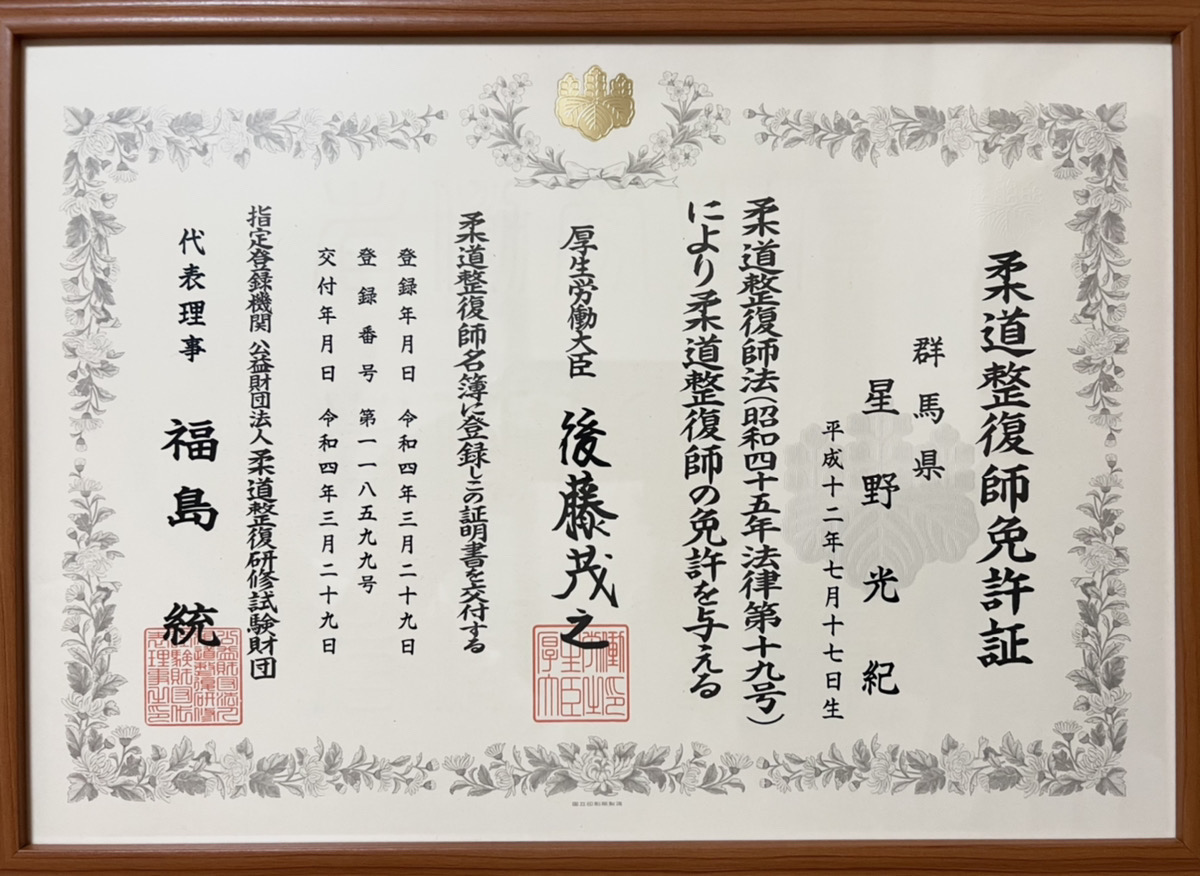 柔道整復師免許証
群馬県
星野光紀
平成十二年七月十七日生
柔道整復師法(昭和四十五年法律第十九号)
により柔道整復師の免許を与える
厚生労働大臣 後藤茂之
柔道整復師名簿に登録しこの証明書を交付する
登録年月日 令和四年三月二十九日
登録番号 第一一八五九九号
交付年月日 令和四年三月二十九日
指定登録機関 公益財団法人柔道整復研修試験財団
代表理事 福島統